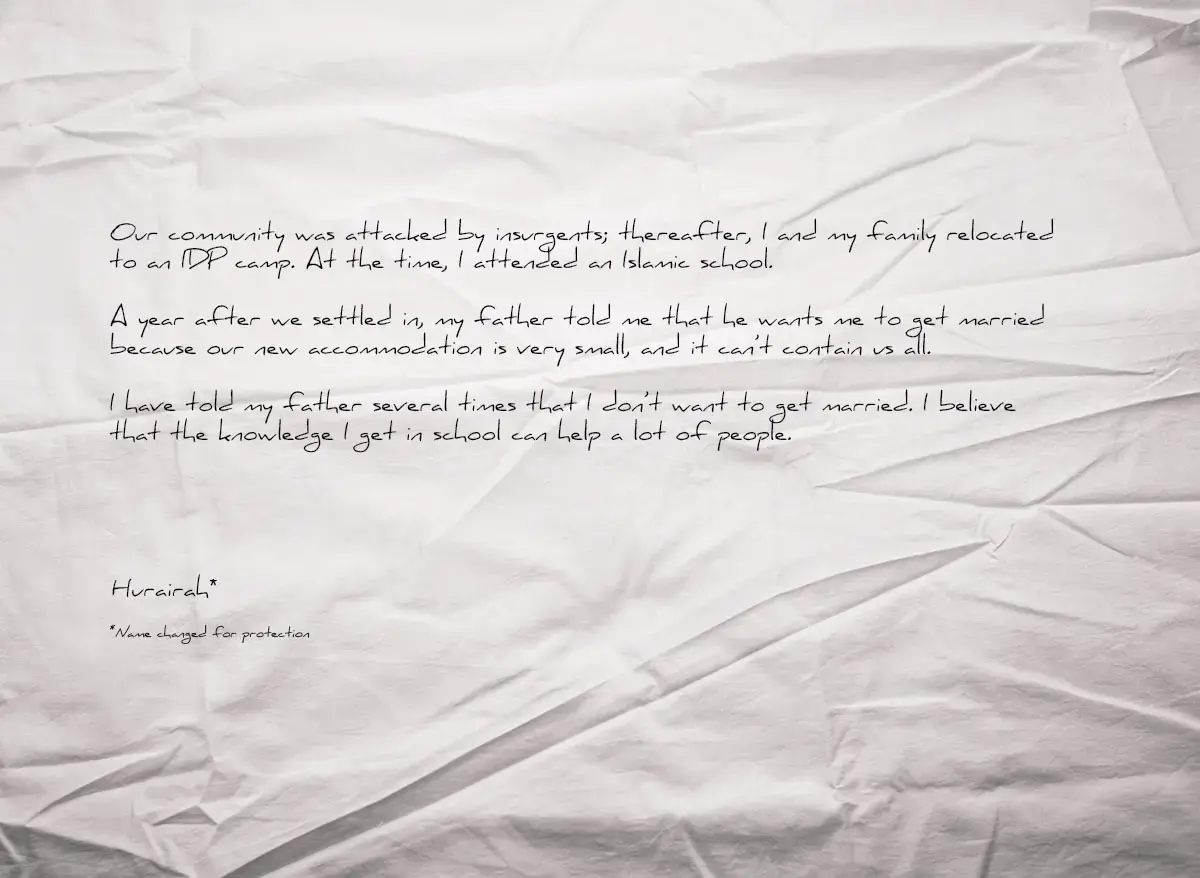 Our community was attacked by insurgents; thereafter, I and my family relocated
to an IDP camp. At the time, I attended an Islamic school.
A year after we settled in, my father told me that he wants me to get married
because our new accommodation is very small, and it can't contain us all.
I have told my father several times that I don't want to get married. I believe
that the knowledge I get in school can help a lot of people.
Hurairah*
*Name changed for protection